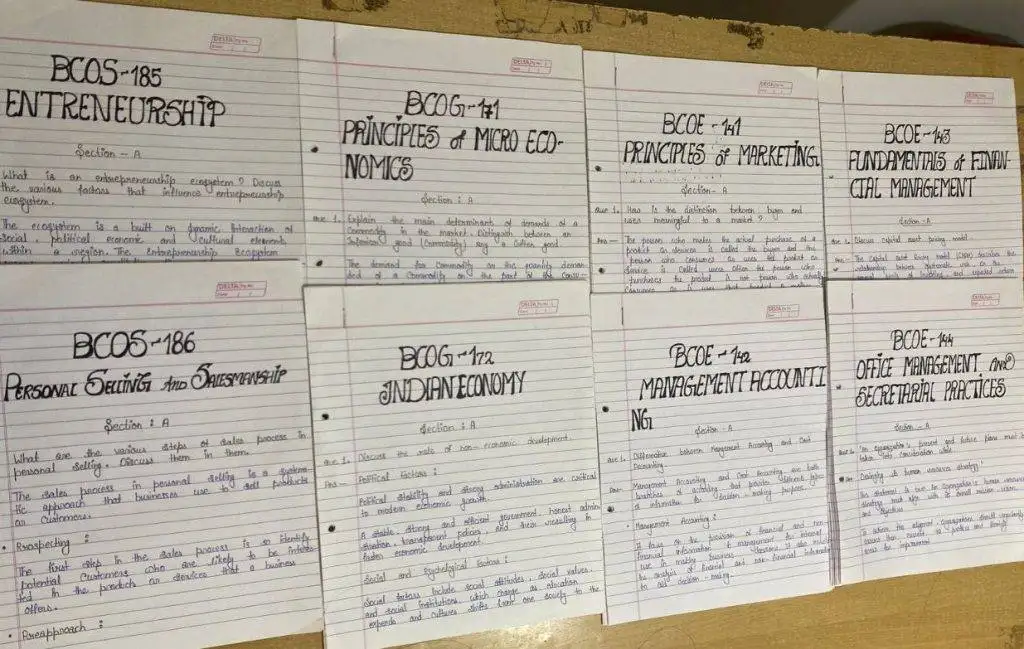 BCOS-185
ENTRENEURSHIP
Section - A
What is an entrepreneurship ecosystem? Discuss
the various factors that influence entrepreneurship
ecosystem.
The ecosystem is a built on dynamic Interaction of
Social, political economic and cultural elements
within a region. The entrepreneurship Ecosystem
BCOG-171
PRINCIPLES of MICRO ECO-
NOMICS
Section : A
Que 1. Explain the main determinants of demands of a
Commodity in the market. Distinguish between an
good (Commodity) good
The demand for Commodity on the
ded of a Commodity on the part is the Consu-
BCOE - 141
PRINCIPLES of MARKETING
Section- A
Que 1. How is the distinction between buyer and
user meaningful to a market?
Ans- The person who makes the actual purchase of a
product or services is called the buyer and the
person who consumes or uses the product or
Service is Called user. Often the person who
purchases the product is not person who actually
BCOE - 143
FUNDAMENTALS of FINAN-
CIAL MANAGEMENT
Section -A
Que 1. Discuss Capital asset pricing model
Ans- The Capital asset Pricing model (CAPM) describes the
relationship between systematic risk or the
BCOS-186
PERSONAL SELLING AND SALESMANSHIP
Section : A
What are the various steps of sales process in
personal selling. Discuss them in them.
The sales process in personal selling is a system-
tic approach that businesses use to sell products
or Customers.
• Prospecting :
The first step in the sales process is to identify
potential Customers who are likely to be intres-
ted In the products or services that a business
offers.
• Preapproach :
BCOG-172
INDIAN ECONOMY
Section : A
Que 1. Discuss the role of non-economic development.
Ans- Political factors :
Political Stability and strong administration are critical
to modern economic growth
A stable, strong and efficient government, honest admin
istration, transparent policies, and their
fasten economic development
Social and Psychological Factors :
Social factors include social attitudes, social values,
and social institutions, which change as education
expends and cultures shifts from one society to the
BCOE - 142
MANAGEMENT ACCOUNTI
NG
Section -A
Que 1. Differentiate between Management Accounting and Cost
Accounting
Ans- Management Accounting and Cost Accounting are both
branches of accounting that provides different types
of information for decision making purposes.
• Management Accounting :
It focus on the provision of financial and non-
financial information to management for internal
use in making business decisions. It also involves
the analysis of financial and non-financial information
to aid decision-making.
BCOE - 144
OFFICE MANAGEMENT AND
SECRETARIAL PRACTICES
Section - A
Que 1. "An organization's present and future plans must be
taken into consideration while
Designing its human resource strategy"